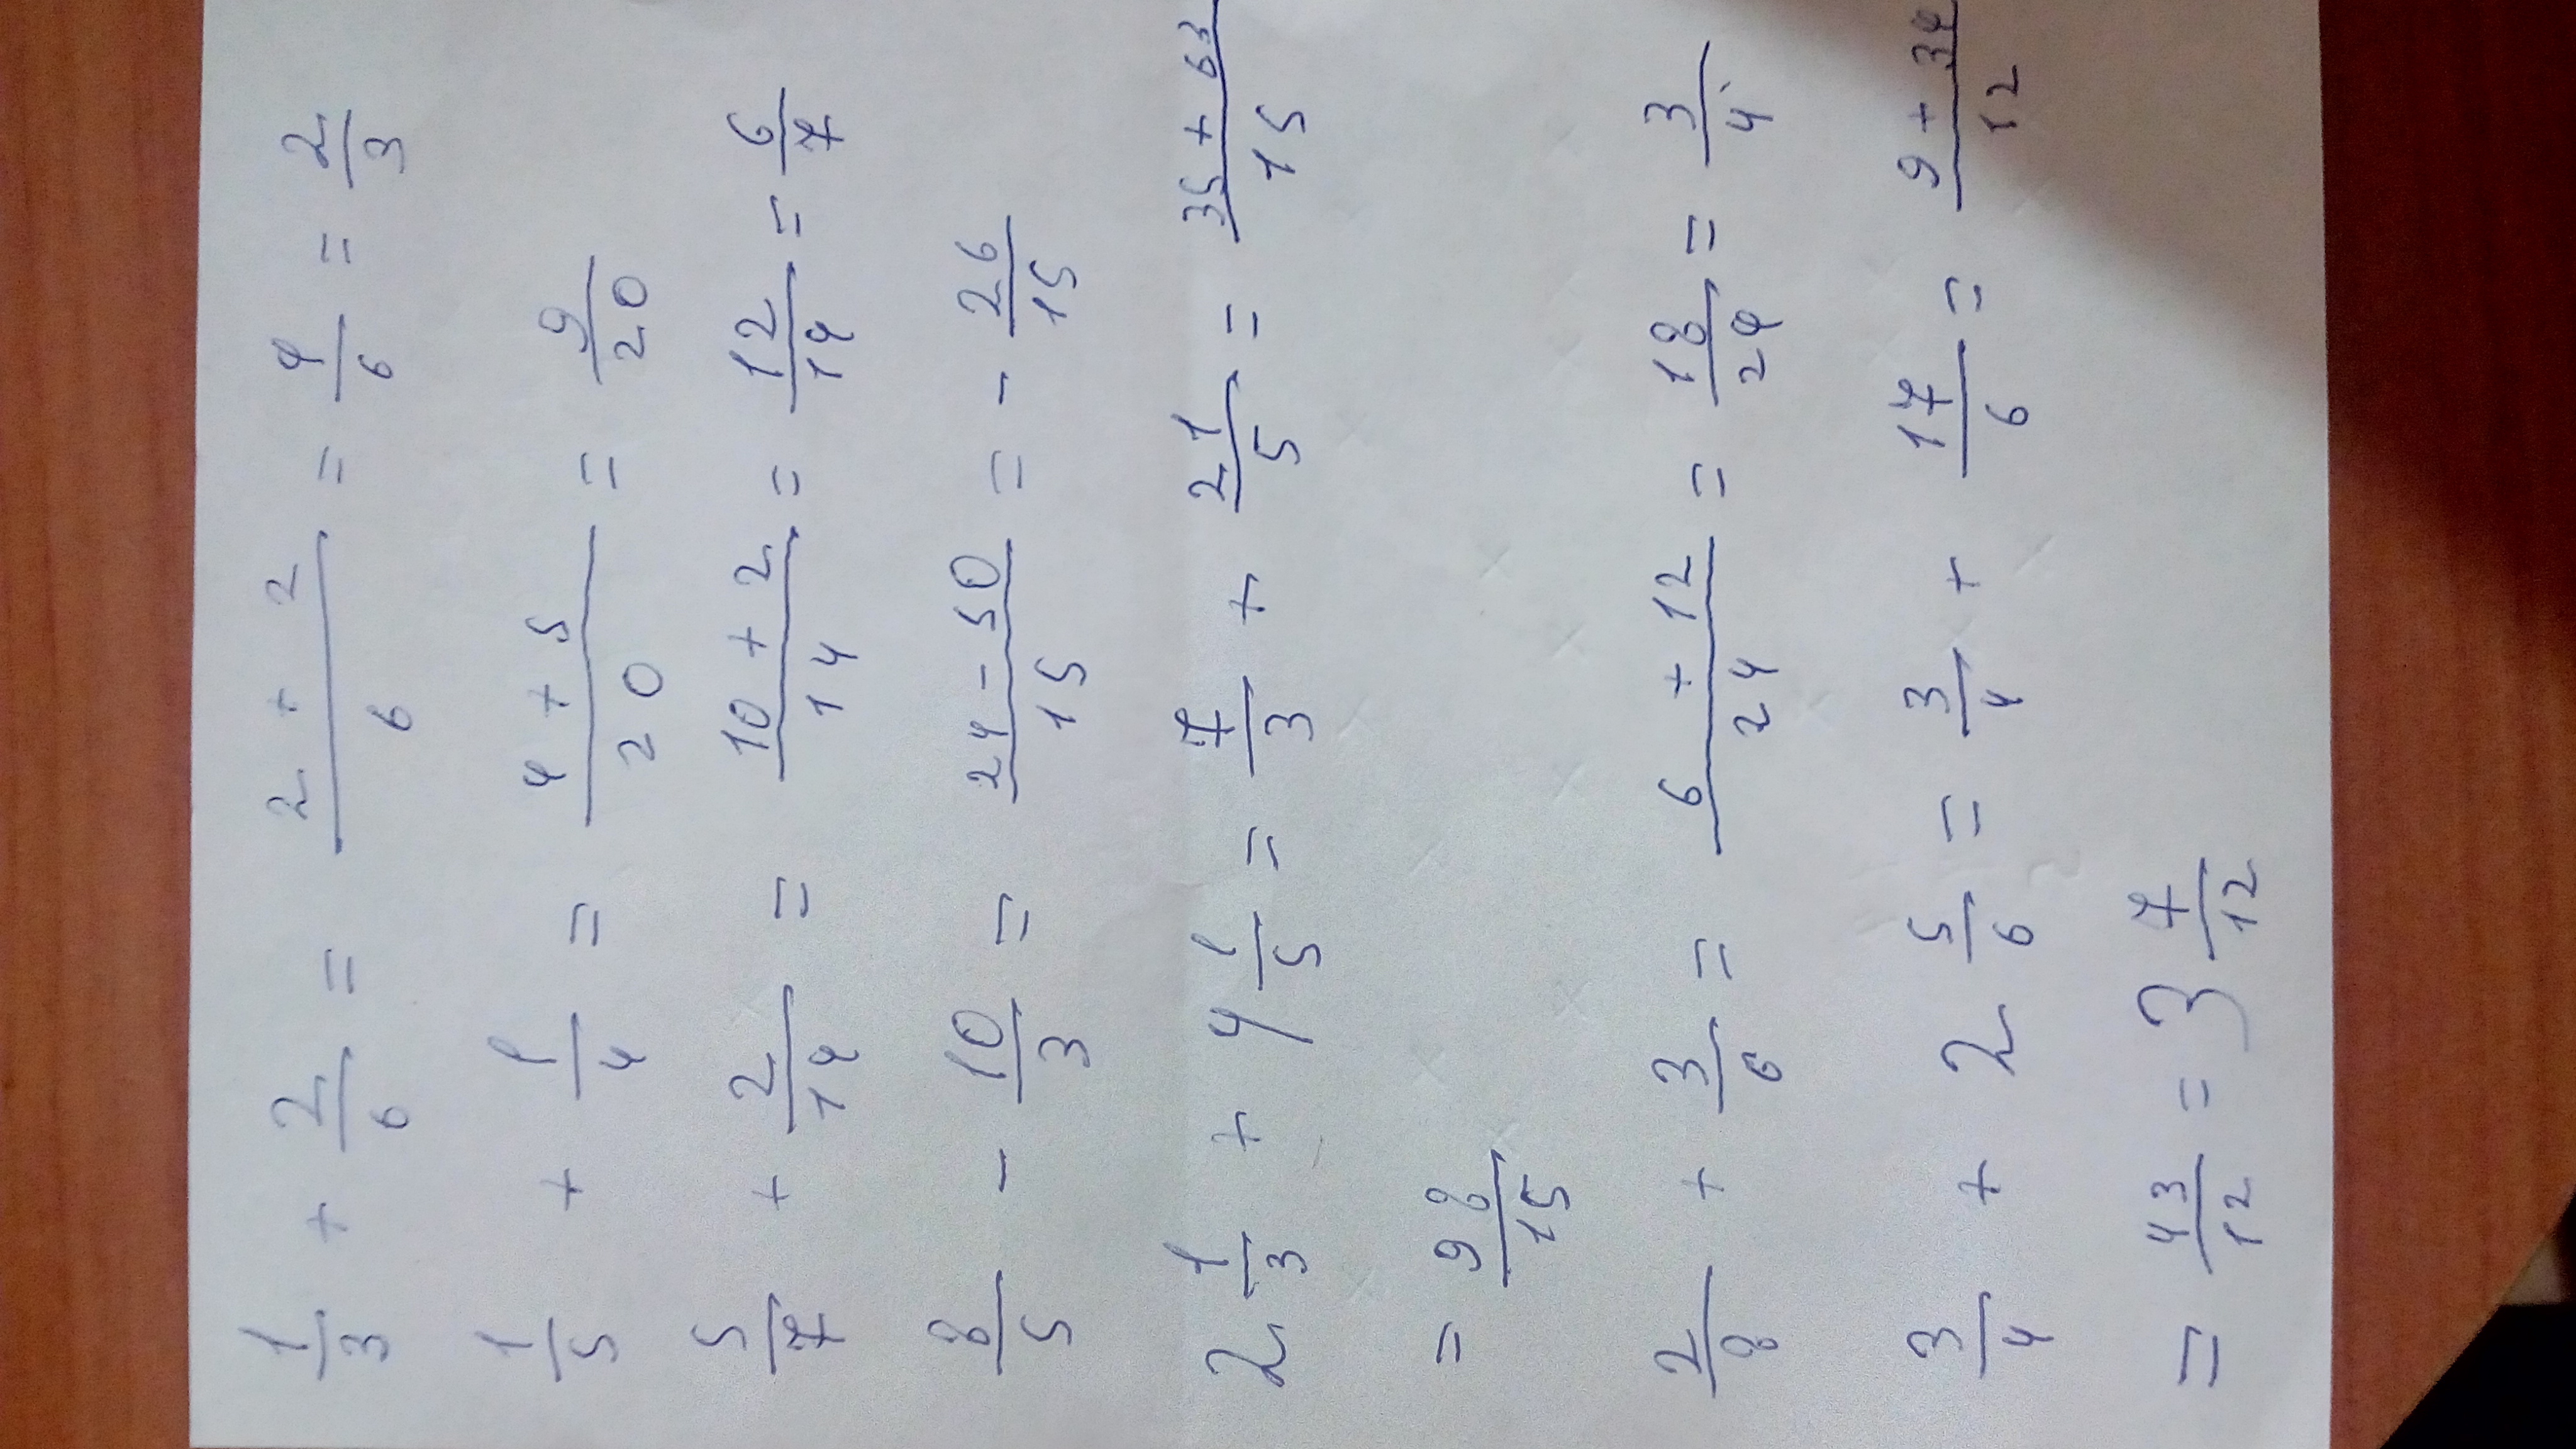 1/3 + 2/6 = (2 + 2)/6 = 4/6 = 2/3
1/5 + 1/4 = (4 + 5)/20 = 9/20
5/7 + 2/14 = (10 + 2)/14 = 12/14 = 6/7
8/5 - 10/3 = (24 - 50)/15 = - 26/15
2 1/3 + 4 1/5 = 7/3 + 21/5 = (35 + 63)/15
= 98/15
2/8 + 3/6 = (6 + 12)/24 = 18/24 = 3/4
3/4 + 2 5/6 = 3/4 + 17/6 = (9 + 34)/12
= 43/12 = 3 7/12